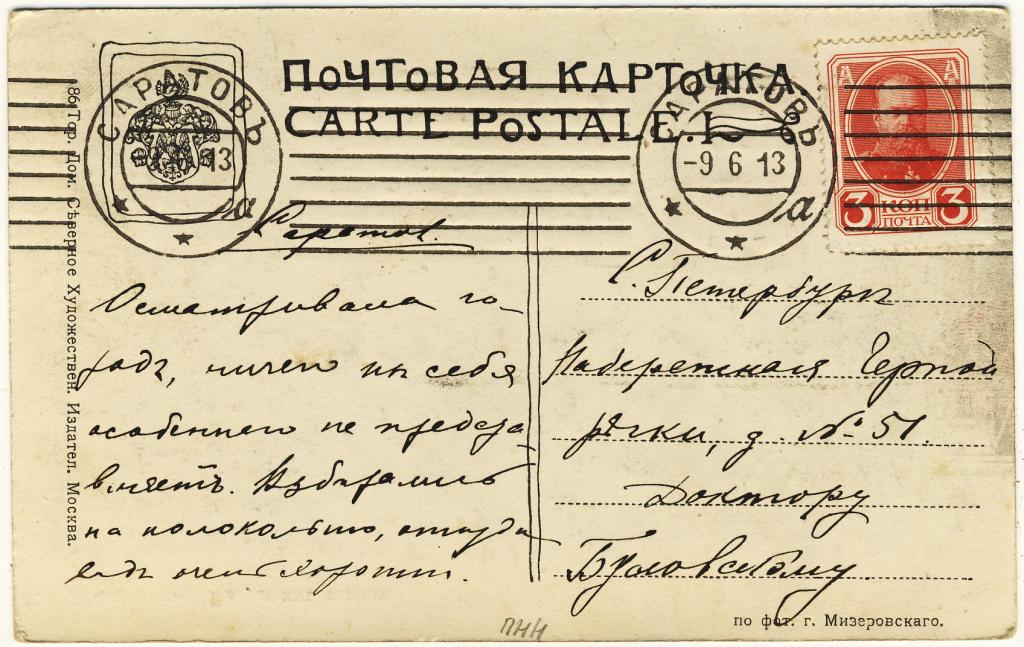 ПОЧТОВАЯ КАРТОЧКА.
CARTE POSTALE.
САРАТОВЪ
13
а
САРАТОВЪ
-9 6 13
а
3 КОП 3
ПОЧТА
Саратов.
Осматривала го-
родъ, ничего из себя
особеннаго не предста-
вляетъ. Взбирались
на колокольню, откуда
видъ очень хорошiй.
С. Петербургъ
Набережная Черной
рѣчки, д. № 51.
Доктору
Буловскому.
86 Тор. Дом. Сѣверное Художествен. Издател. Москва.
по фот. г. Мизеровскаго.
ПНН